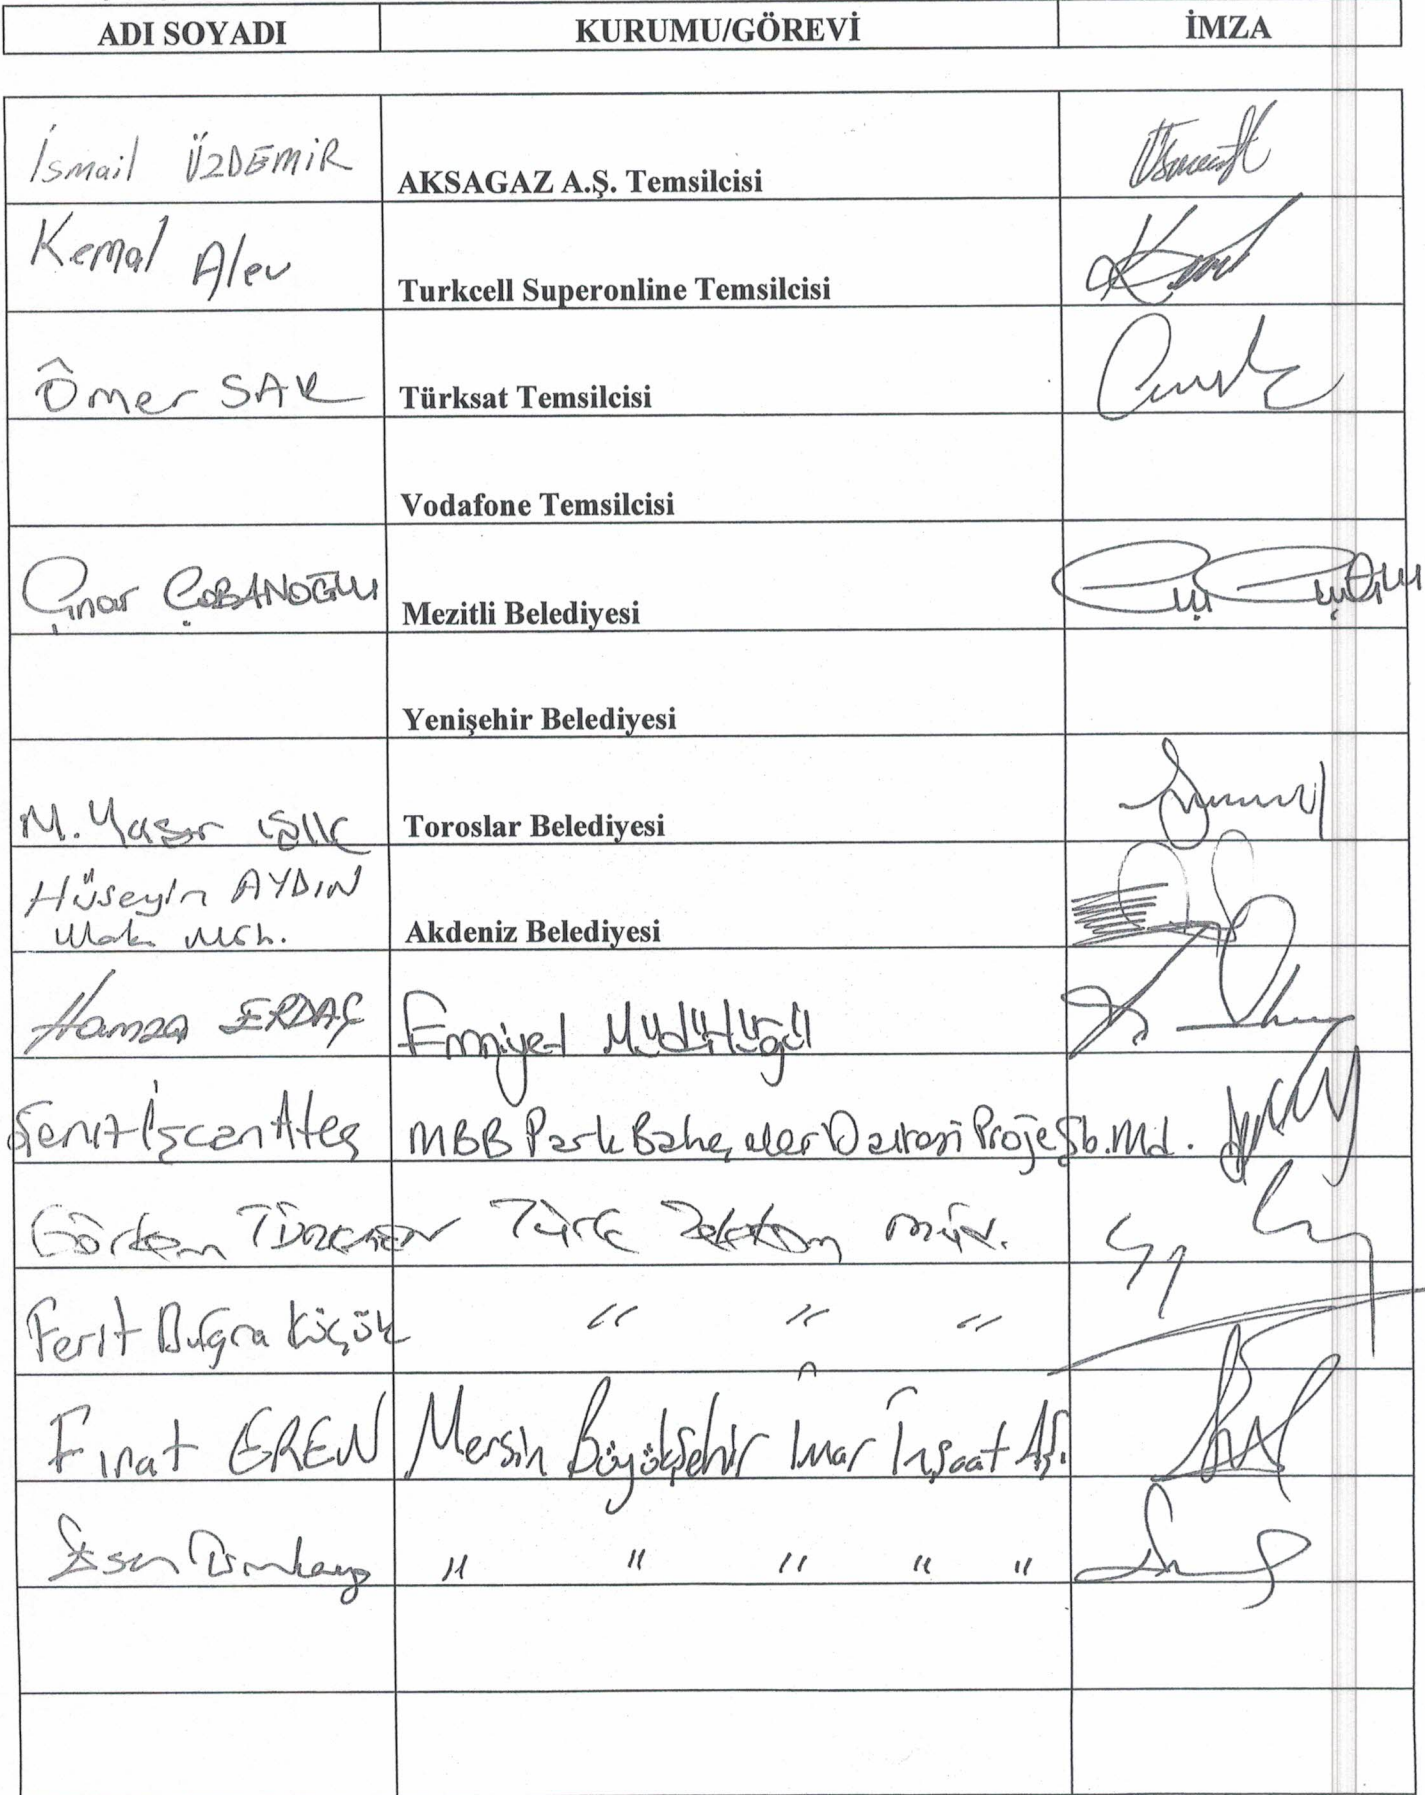 ADI SOYADI KURUMU/GÖREVİ İMZA
İsmail ÜZDEMİR AKSAGAZ A.Ş. Temsilcisi
Kemal Alev Turkcell Superonline Temsilcisi
Ömer SAK Türksat Temsilcisi
Vodafone Temsilcisi
Çınar ÇOBANOĞLU Mezitli Belediyesi
Yenişehir Belediyesi
M. Yaşar IŞIK Toroslar Belediyesi
Hüseyin AYDIN
Mak. Müh. Akdeniz Belediyesi
Hamza ERDAÇ Emniyet Müdürlüğü
İşcan Ateş MBB Park Bahçeler Dairesi Proje Şb. Md.
Görkem TÜRKMEN Türk Telekom müh.
Ferit Buğra Küçük " " "
Fırat EREN Mersin Büyükşehir İmar İnşaat AŞ.
" " " " "